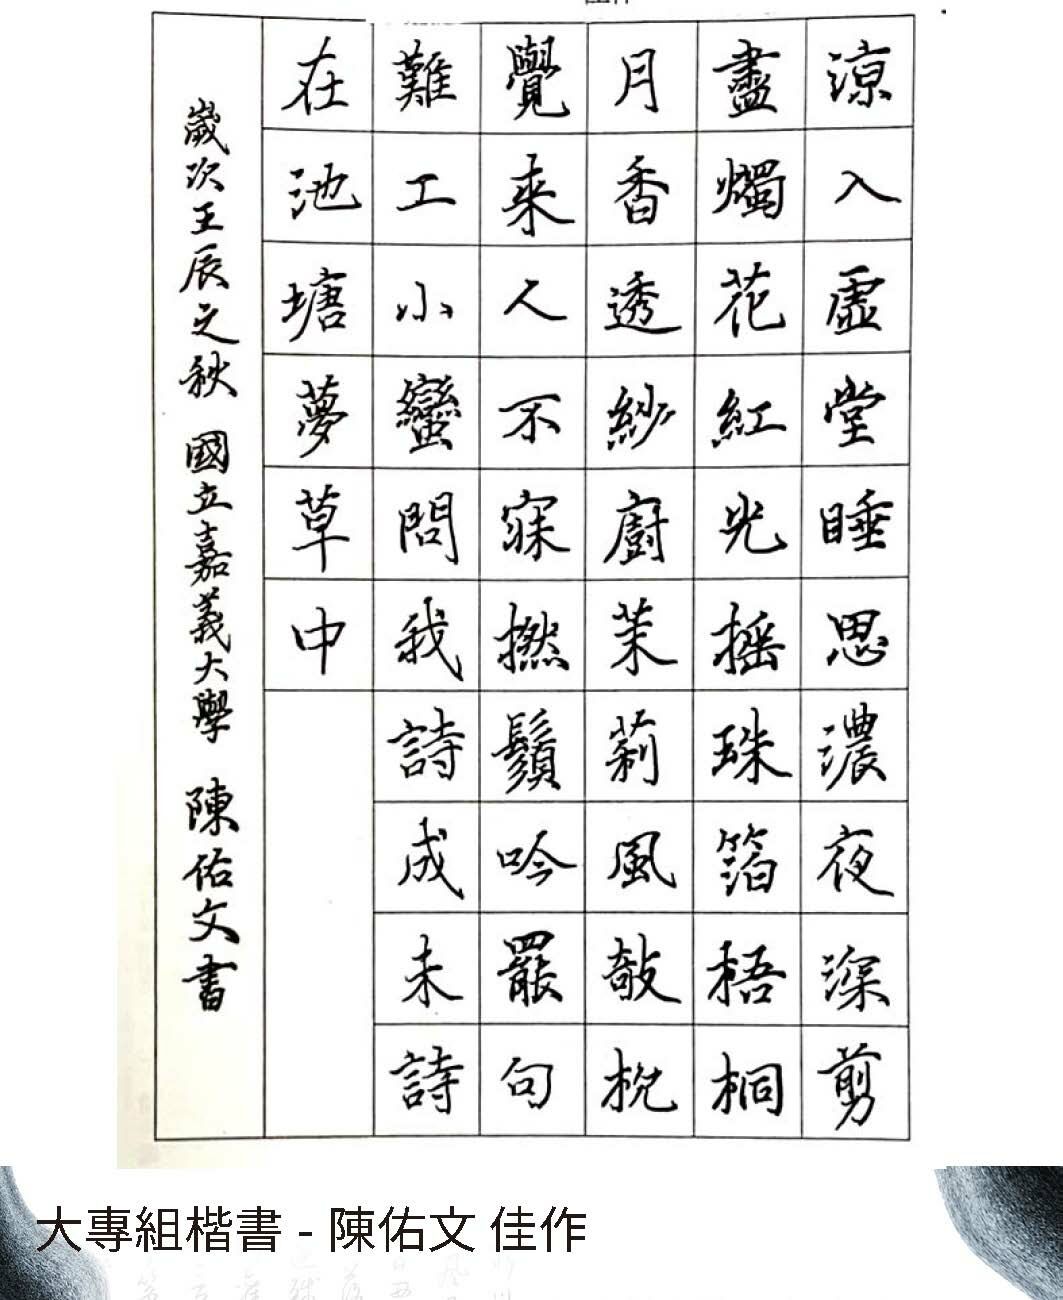 涼入虛堂睡思濃夜深剪
盡燭花紅光搖珠箔梧桐
月香透紗廚茉莉風敧枕
覺來人不寐撚鬚吟罷句
難工小蠻問我詩成未詩
在池塘夢草中
歲次壬辰之秋 國立嘉義大學 陳佑文書
大專組楷書 - 陳佑文 佳作